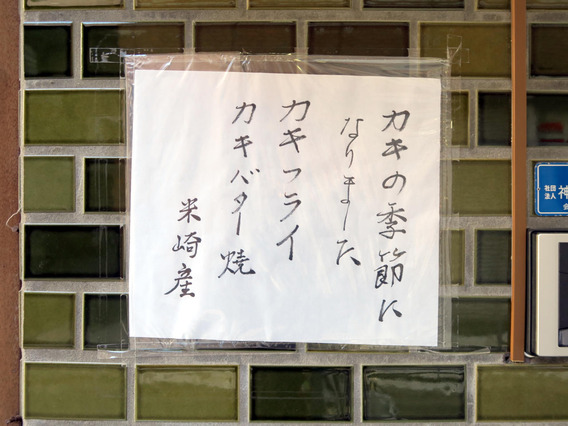 カキの季節に
なりました
カキフライ
カキバター焼
米崎産
社団
法人
神